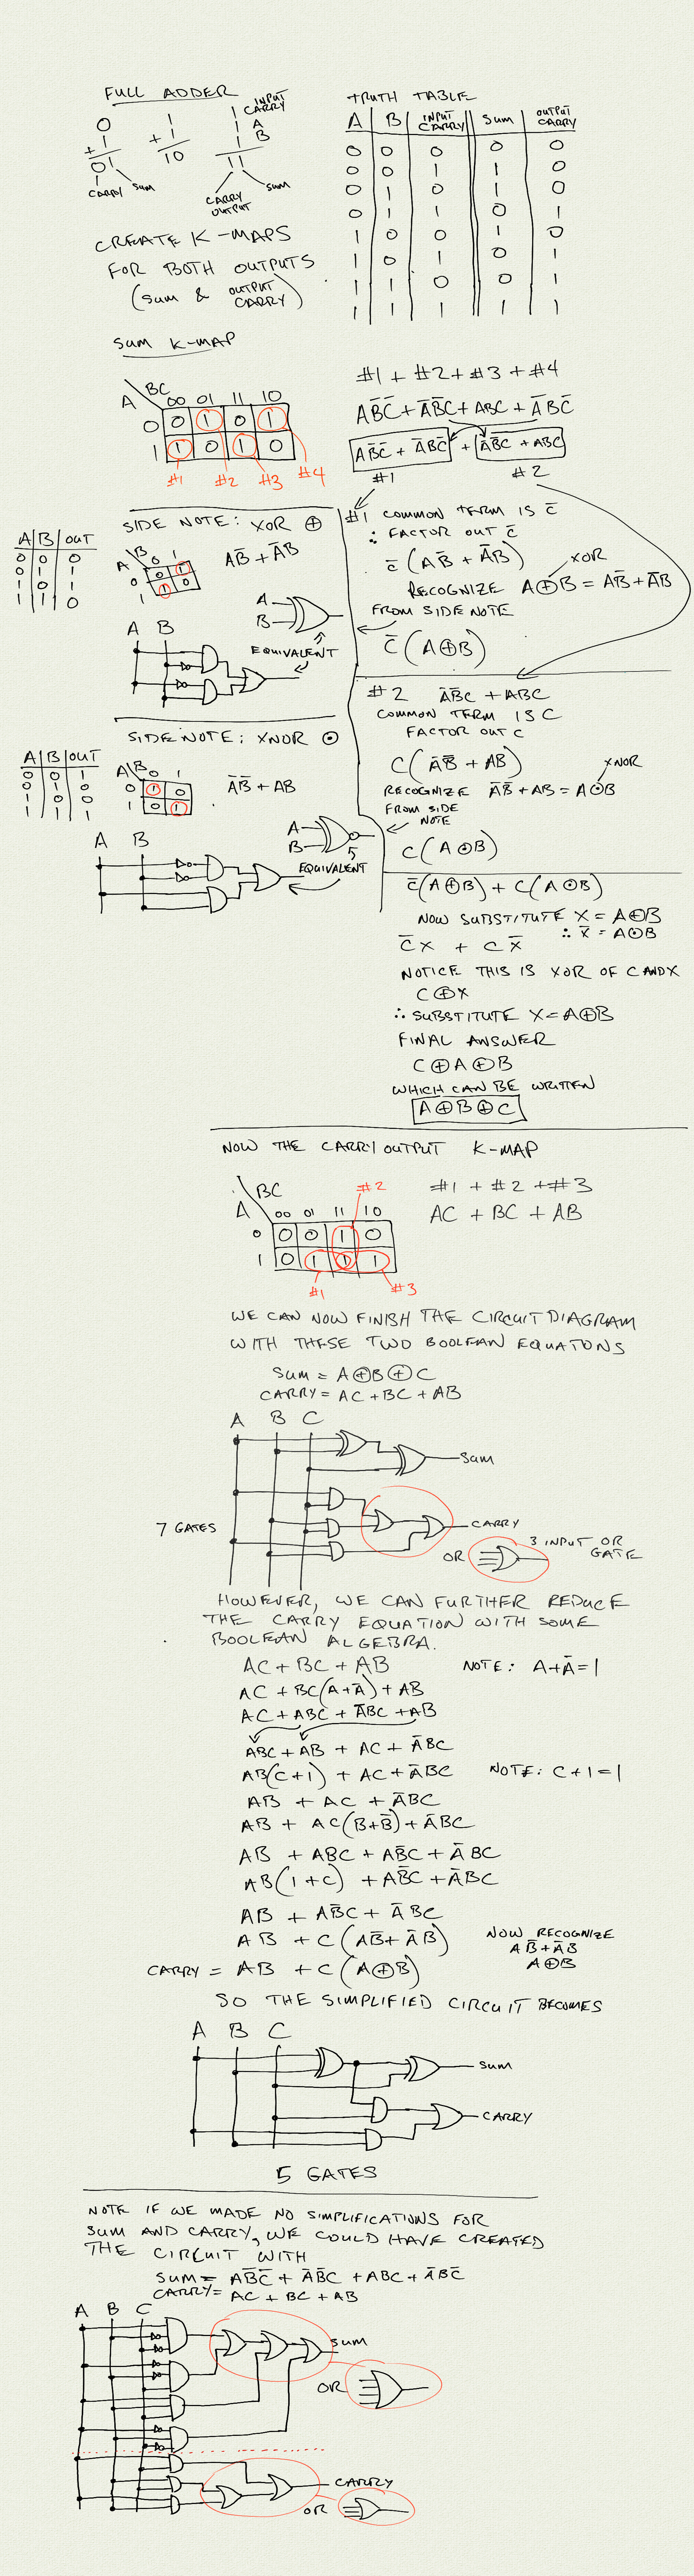 FULL ADDER
0
+ 1
01
CARRY SUM
1
+ 1
10
1 INPUT CARRY
1 A
1 B
11
CARRY OUTPUT SUM
CREATE K-MAPS
FOR BOTH OUTPUTS
(SUM & OUTPUT CARRY)
TRUTH TABLE
A B INPUT CARRY SUM OUTPUT CARRY
0 0 0 0 0
0 0 1 1 0
0 1 0 1 0
0 1 1 0 1
1 0 0 1 0
1 0 1 0 1
1 1 0 0 1
1 1 1 1 1
SUM K-MAP
BC
A 00 01 11 10
0 0 1 0 1
1 1 0 1 0
#1 #2 #3 #4
#1 + #2 + #3 + #4
AB̅C̅ + A̅B̅C + ABC + A̅BC̅
AB̅C̅ + A̅BC̅ + A̅B̅C + ABC
#1 #2
SIDE NOTE: XOR ⊕
A B OUT
0 0 0
0 1 1
1 0 1
1 1 0
B
A 0 1
0 0 1
1 1 0
AB̅ + A̅B
A
B
A B
EQUIVALENT
#1 COMMON TERM IS C̅
∴ FACTOR OUT C̅
C̅(AB̅ + A̅B)
XOR
RECOGNIZE A⊕B = AB̅ + A̅B
FROM SIDE NOTE
C̅(A⊕B)
SIDE NOTE: XNOR ⊙
A B OUT
0 0 1
0 1 0
1 0 0
1 1 1
A B 0 1
0 1 0
1 0 1
A̅B̅ + AB
A
B
A B
EQUIVALENT
#2 A̅B̅C + ABC
COMMON TERM IS C
FACTOR OUT C
C(A̅B̅ + AB)
XNOR
RECOGNIZE A̅B̅ + AB = A⊙B
FROM SIDE NOTE
C(A⊙B)
C̅(A⊕B) + C(A⊙B)
NOW SUBSTITUTE X = A⊕B
∴ X̅ = A⊙B
C̅X + CX̅
NOTICE THIS IS XOR OF C AND X
C⊕X
∴ SUBSTITUTE X = A⊕B
FINAL ANSWER
C⊕A⊕B
WHICH CAN BE WRITTEN
A⊕B⊕C
NOW THE CARRY OUTPUT K-MAP
BC
A 00 01 11 10
0 0 0 1 0
1 0 1 1 1
#2
#1 #3
#1 + #2 + #3
AC + BC + AB
WE CAN NOW FINISH THE CIRCUIT DIAGRAM
WITH THESE TWO BOOLEAN EQUATONS
SUM = A⊕B⊕C
CARRY = AC + BC + AB
A B C
SUM
7 GATES
CARRY
OR
3 INPUT OR GATE
HOWEVER, WE CAN FURTHER REDUCE
THE CARRY EQUATION WITH SOME
BOOLEAN ALGEBRA.
AC + BC + AB NOTE: A+A̅=1
AC + BC(A+A̅) + AB
AC + ABC + A̅BC + AB
ABC + AB + AC + A̅BC
AB(C+1) + AC + A̅BC NOTE: C+1=1
AB + AC + A̅BC
AB + AC(B+B̅) + A̅BC
AB + ABC + AB̅C + A̅BC
AB(1+C) + AB̅C + A̅BC
AB + AB̅C + A̅BC
AB + C(AB̅ + A̅B)
NOW RECOGNIZE
AB̅ + A̅B
A⊕B
CARRY = AB + C(A⊕B)
SO THE SIMPLIFIED CIRCUIT BECOMES
A B C
SUM
CARRY
5 GATES
NOTE IF WE MADE NO SIMPLIFICATIONS FOR
SUM AND CARRY, WE COULD HAVE CREATED
THE CIRCUIT WITH
SUM = AB̅C̅ + A̅B̅C + ABC + A̅BC̅
CARRY = AC + BC + AB
A B C
SUM
OR
CARRY
OR